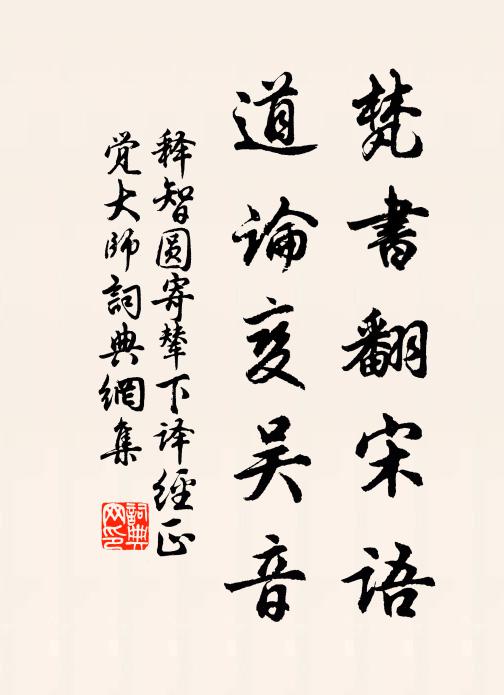 梵書翻宋语
道論变吴音
释智圆寄辇下译經正
觉大师詞典網集
詞典网印